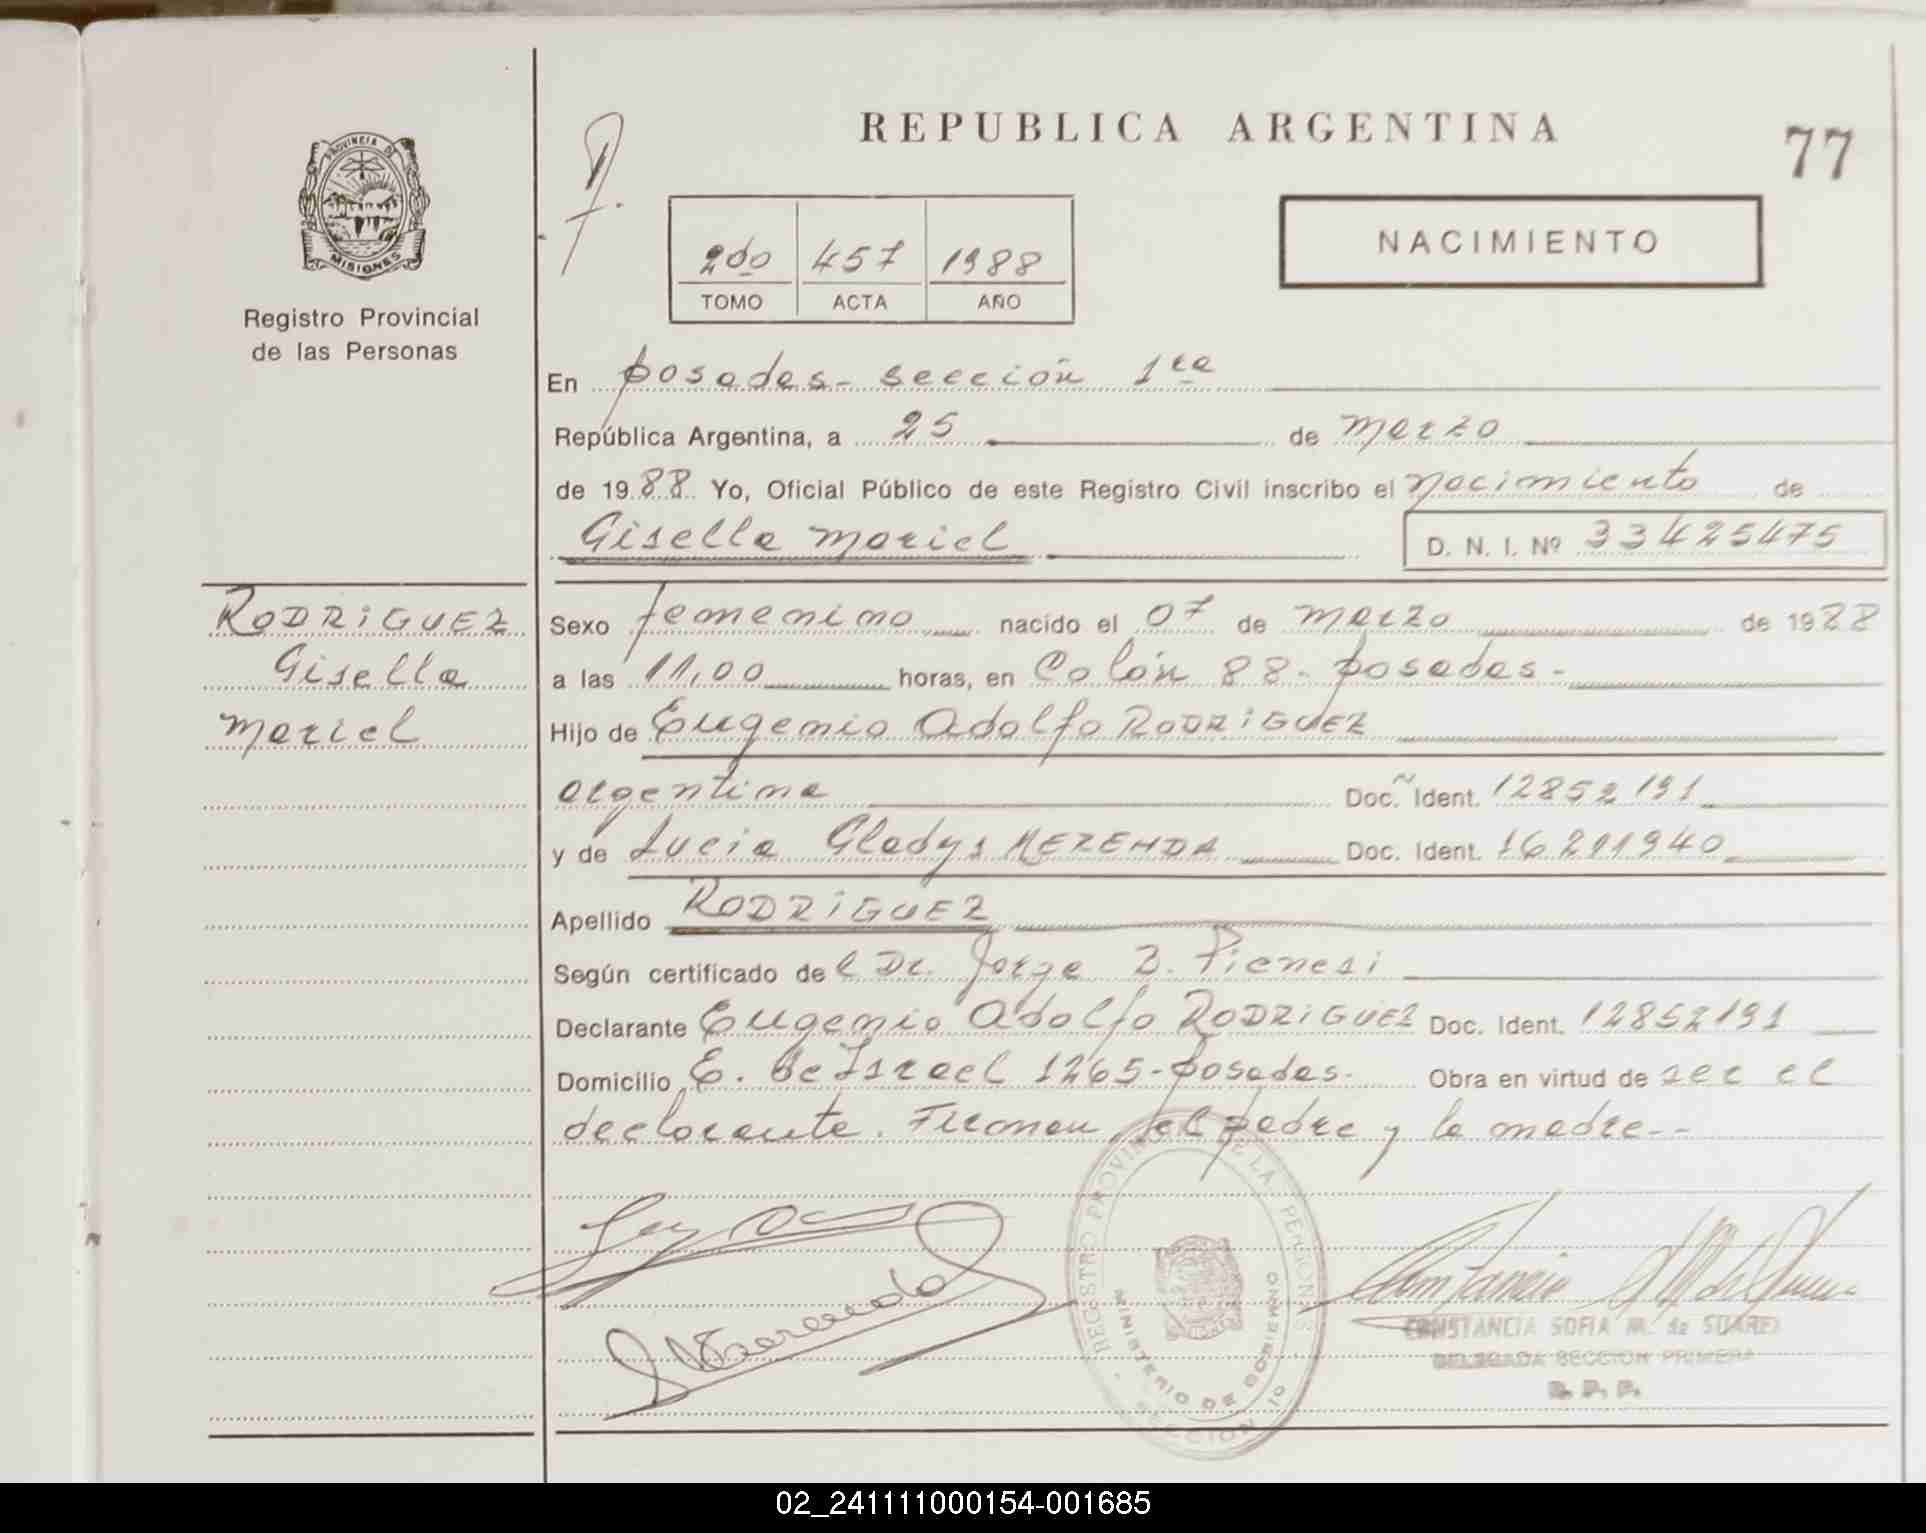 REPUBLICA ARGENTINA
77
PROVINCIA DE
MISIONES
Registro Provincial
de las Personas
2do 457 1988
TOMO ACTA AÑO
NACIMIENTO
En Posadas - sección 1ra
República Argentina, a 25 de marzo
de 1988 Yo, Oficial Público de este Registro Civil inscribo el nacimiento de
Gisella Mariel D. N. I. Nº 33425475
RODRIGUEZ
Gisella
Mariel
Sexo femenino nacido el 07 de marzo de 1988
a las 11,00 horas, en Colón 88 - Posadas -
Hijo de Eugenio Adolfo RODRIGUEZ
argentina Doc. Ident. 12852191
y de Lucia Gladys MERENDA Doc. Ident. 16291940
Apellido RODRIGUEZ
Según certificado del Dr. Jorge
Declarante Eugenio Adolfo RODRIGUEZ Doc. Ident. 12852191
Domicilio E. de Israel 1265 - Posadas - Obra en virtud de ser el
declarante. Firman, el padre y la madre --
REGISTRO PROVINCIAL DE LA PERSONAS
MINISTERIO DE GOBIERNO
SECCION 1º
CONSTANCIA SOFIA M. de SUAREZ
DELEGADA SECCION PRIMERA
R. P. P.
02_241111000154-001685